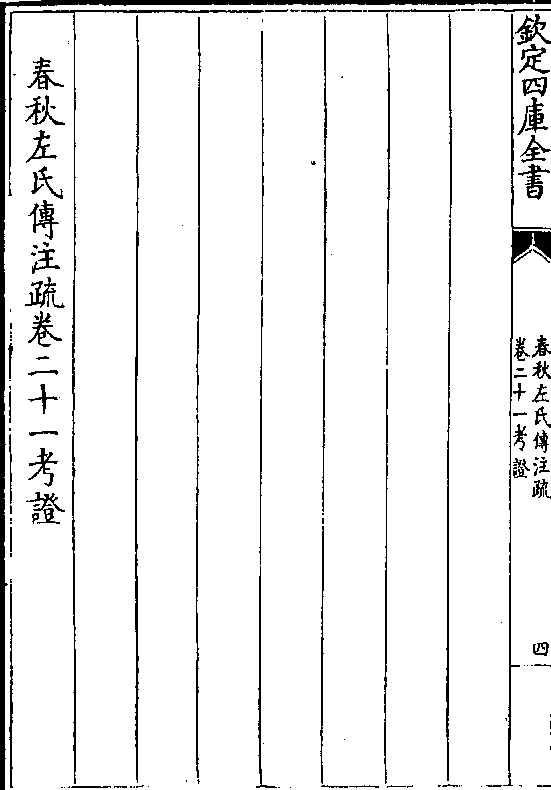 欽定四庫全書
春秋左氏傳注疏
卷二十一考證
四
春秋左氏傳注疏卷二十一考證